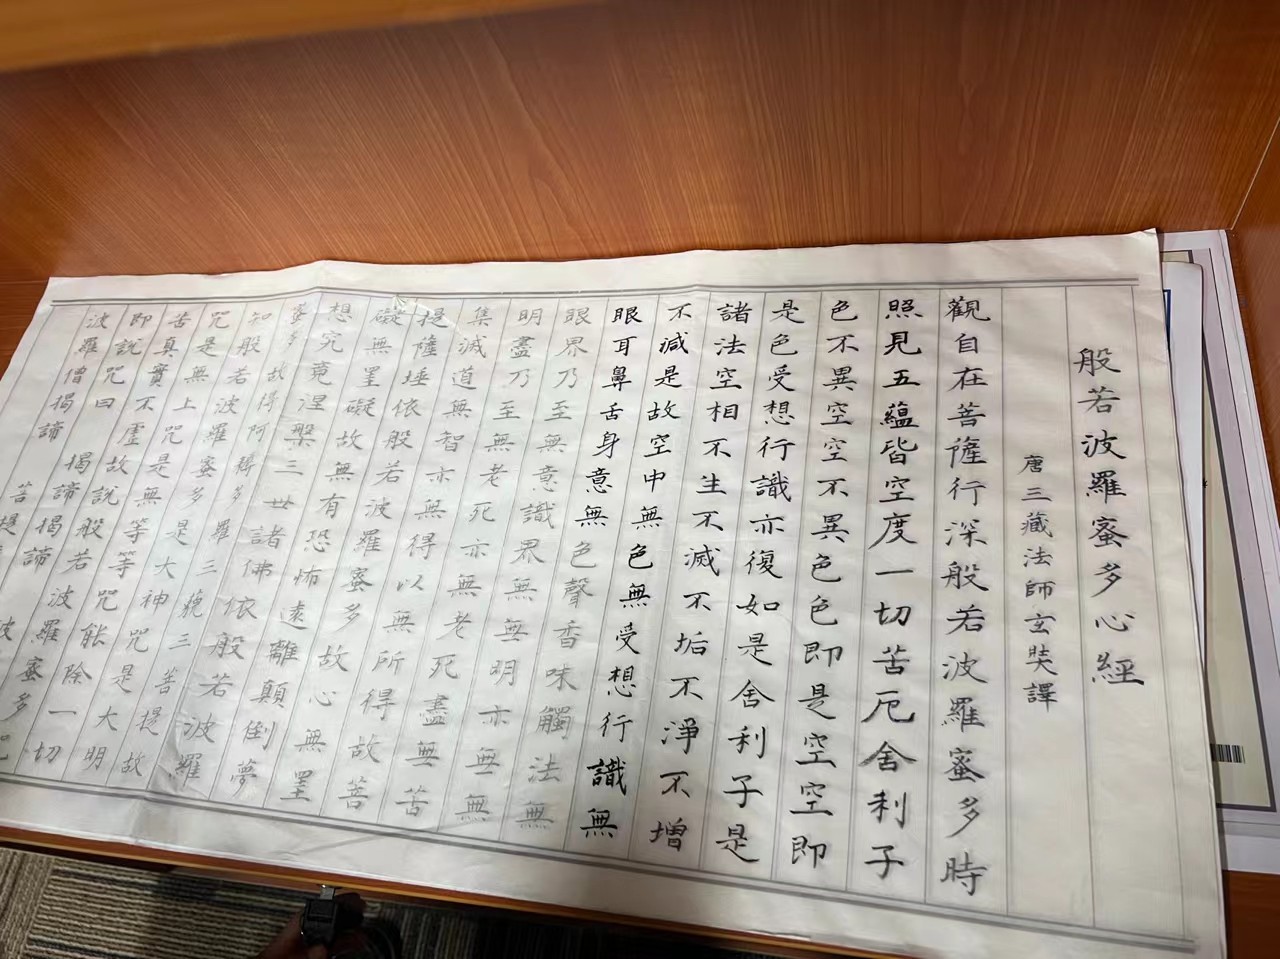 般若波羅蜜多心經
唐三藏法師玄奘譯
觀自在菩薩行深般若波羅蜜多時
照見五蘊皆空度一切苦厄舍利子
色不異空空不異色色即是空空即
是色受想行識亦復如是舍利子是
諸法空相不生不滅不垢不淨不增
不減是故空中無色無受想行識無
眼耳鼻舌身意無色聲香味觸法無
眼界乃至無意識界無無明亦無無
明盡乃至無老死亦無老死盡無苦
集滅道無智亦無得以無所得故菩
提薩埵依般若波羅蜜多故心無罣
礙無罣礙故無有恐怖遠離顛倒夢
想究竟涅槃三世諸佛依般若波羅
蜜多故得阿耨多羅三藐三菩提故
知般若波羅蜜多是大神咒是大明
咒是無上咒是無等等咒能除一切
苦真實不虛故說般若波羅蜜多咒
即說咒曰 揭諦揭諦 波
波羅僧揭諦 菩提